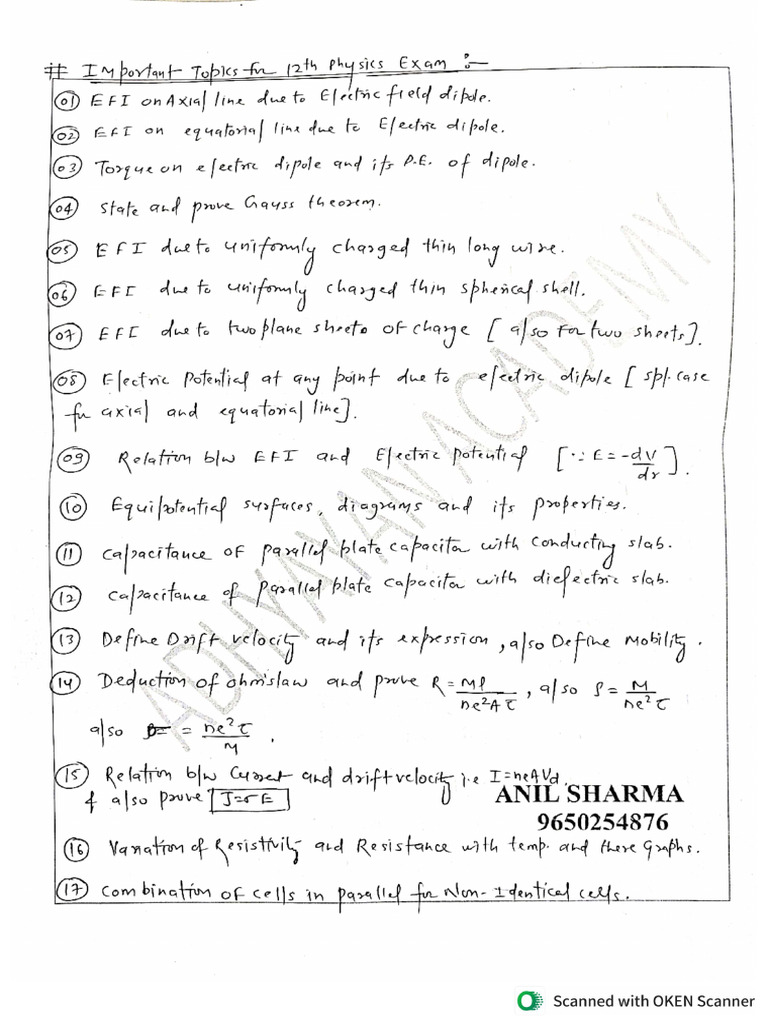 # Important Topics for 12th Physics Exam :-
01 EFI on Axial line due to Electric field dipole.
02 EFI on equatorial line due to Electric dipole.
03 Torque on electric dipole and its P.E. of dipole.
04 State and prove Gauss theorem.
05 EFI due to uniformly charged thin long wire.
06 EFI due to uniformly charged thin spherical shell.
07 EFI due to two plane sheets of charge [also for two sheets].
08 Electric Potential at any point due to electric dipole [spl. case
for axial and equatorial line].
09 Relation b/w EFI and Electric potential [∵ E = -dV/dr].
10 Equipotential surfaces, diagrams and its properties.
11 Capacitance of parallel plate capacitor with conducting slab.
12 Capacitance of parallel plate capacitor with dielectric slab.
13 Define Drift velocity and its expression, also Define Mobility.
14 Deduction of ohm's law and prove R = Ml/ne²Aτ, also ρ = M/ne²τ
also = ne²τ/M.
15 Relation b/w Current and drift velocity i.e I=neAVd.
& also prove J=σE
ANIL SHARMA
9650254876
16 Variation of Resistivity and Resistance with temp. and there Graphs.
17 Combination of cells in parallel for Non-Identical cells.
ADHYAYAN ACADEMY
Scanned with OKEN Scanner